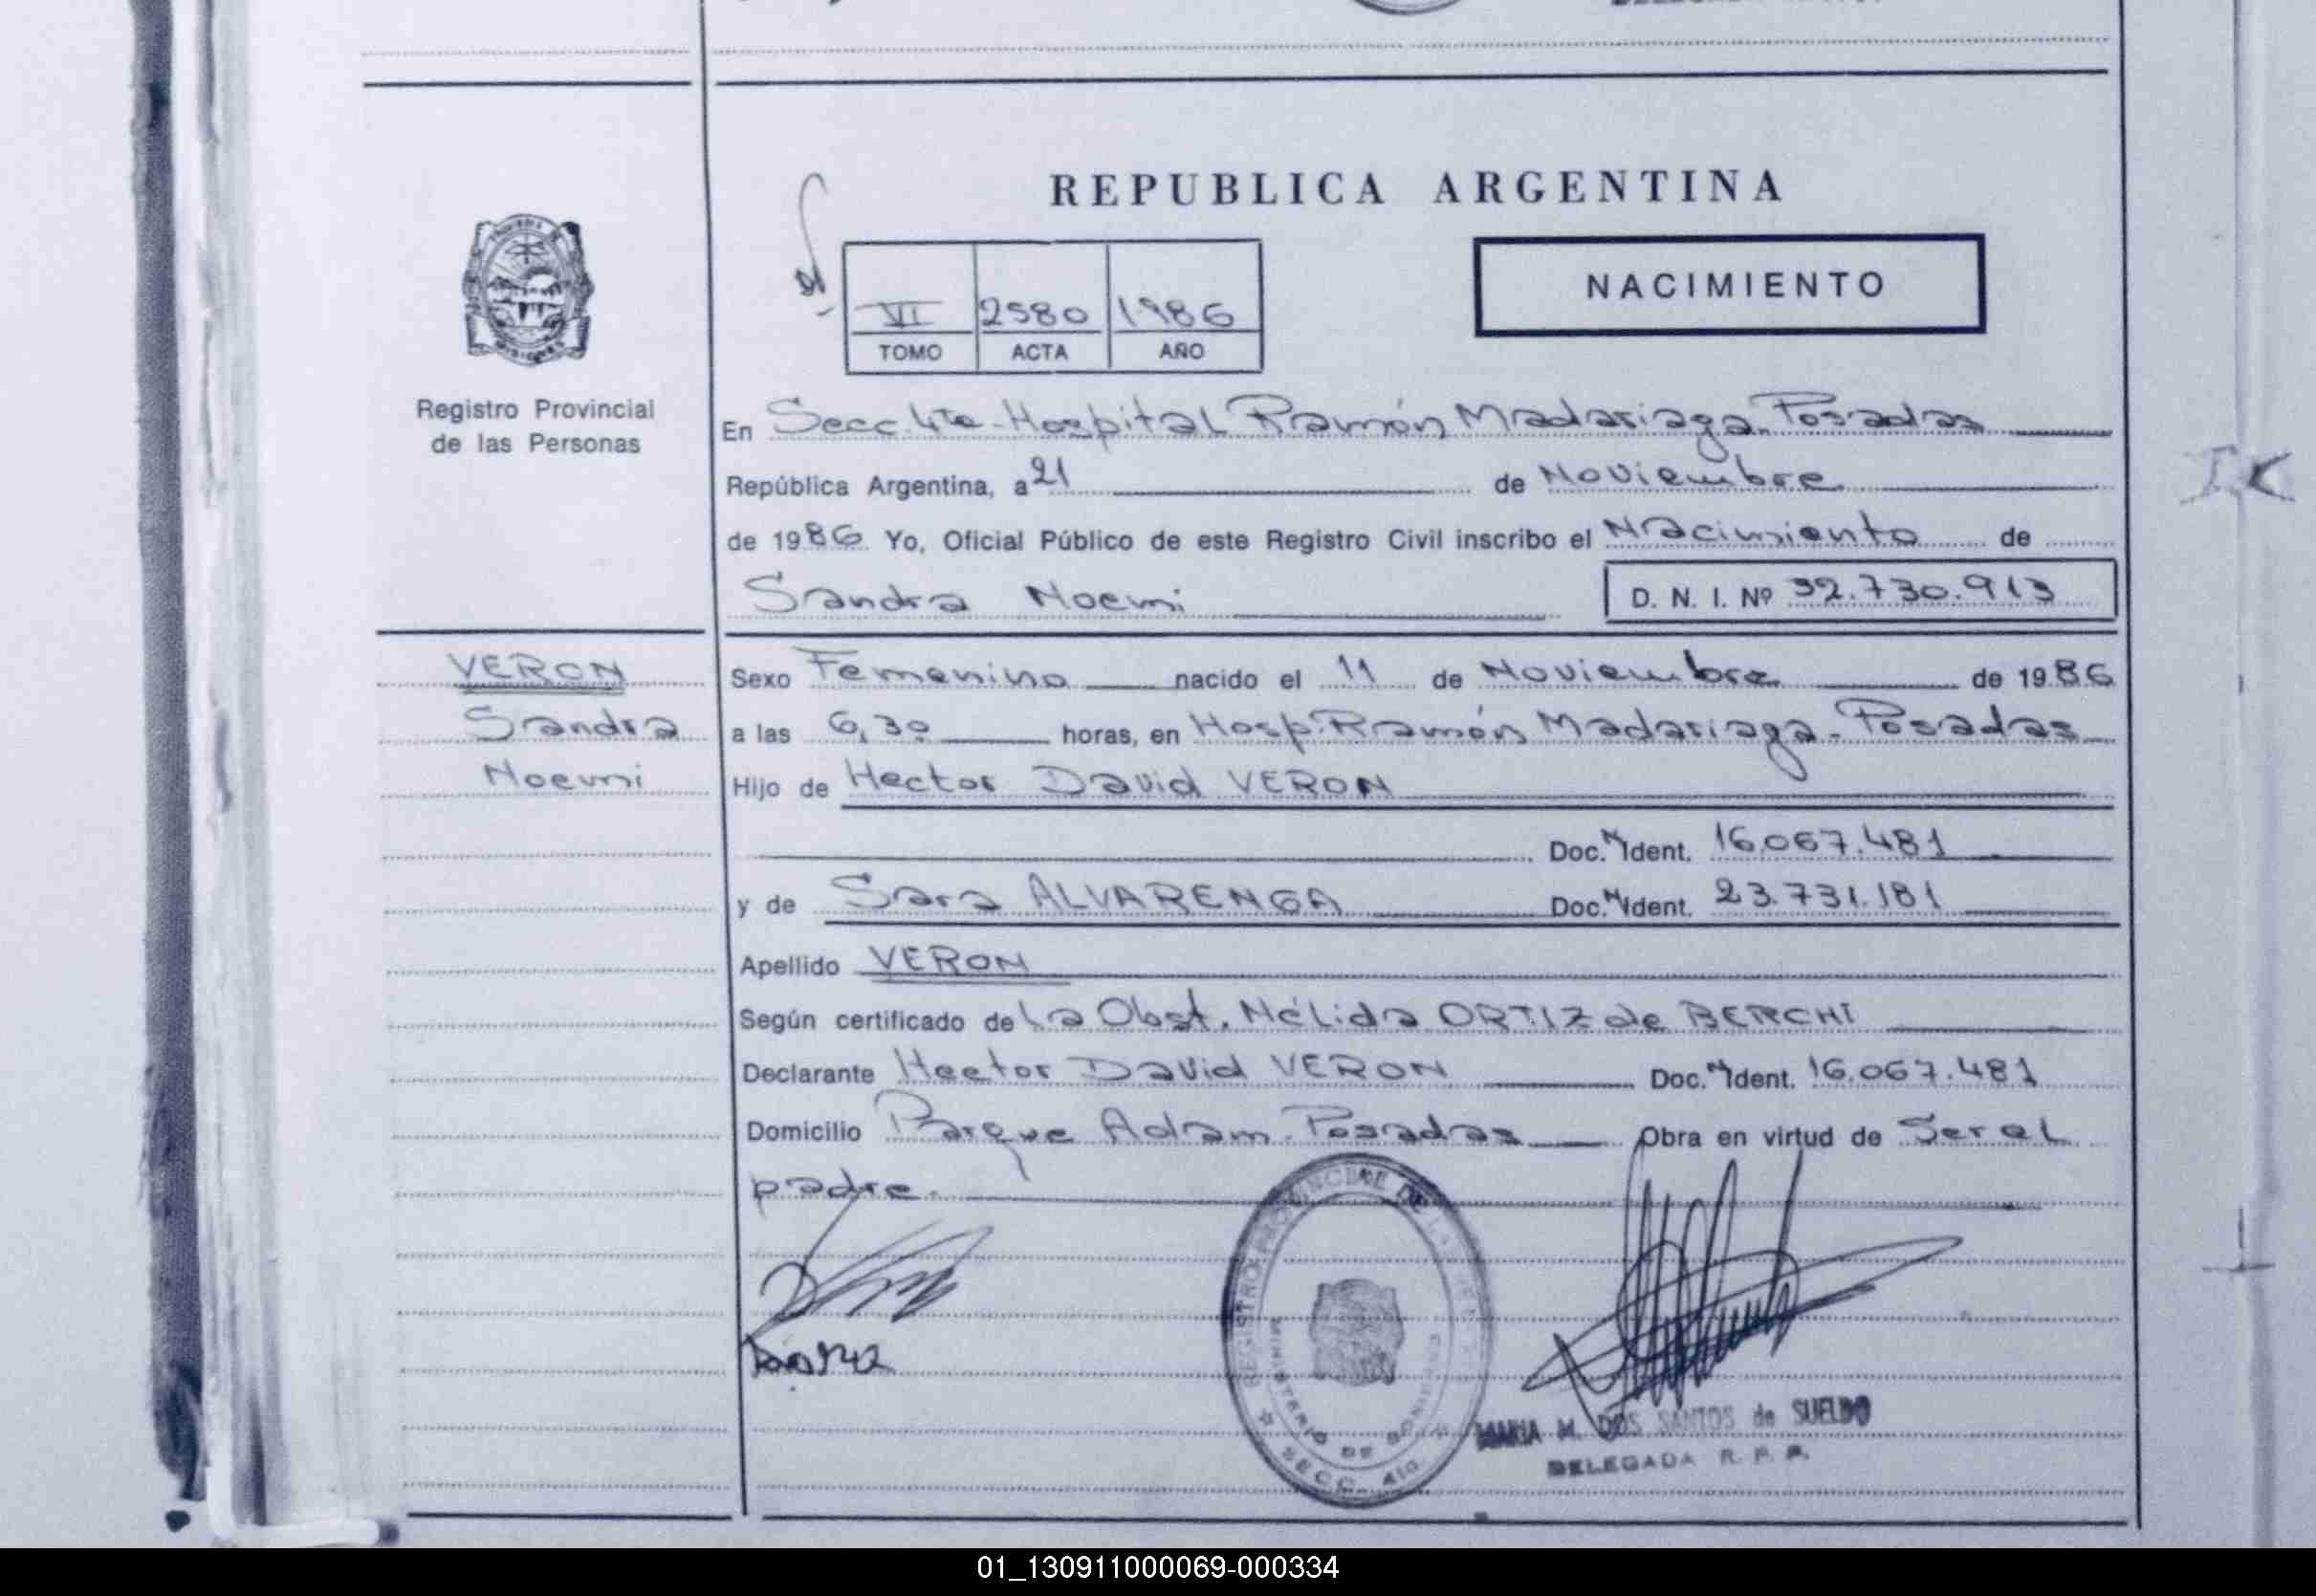 REPUBLICA ARGENTINA
NACIMIENTO
VI 2580 1986
TOMO ACTA AÑO
Registro Provincial
de las Personas
En Secc. 4ta. Hospital Ramón Madariaga. Posadas
República Argentina, a 21 de Noviembre
de 1986 Yo, Oficial Público de este Registro Civil inscribo el Nacimiento de
Sandra Noemi D. N. I. Nº 32.730.913
VERON
Sandra
Noemi
Sexo Femenino nacido el 11 de Noviembre de 1986
a las 6,30 horas, en Hosp. Ramón Madariaga - Posadas
Hijo de Hector David VERON
Doc. N Ident. 16.067.481
y de Sara ALVARENGA Doc. N Ident. 23.731.181
Apellido VERON
Según certificado de La Obst. Nélida ORTIZ de BERCHI
Declarante Hector David VERON Doc. N Ident. 16.067.481
Domicilio Parque Adam. Posadas Obra en virtud de Ser el
padre.
REGISTRO PROVINCIAL DE LAS
MINISTERIO DE GOBIERNO
SECC. 4ta.
MARIA M. DOS SANTOS de SUELDO
DELEGADA R. P. P.
01_130911000069-000334